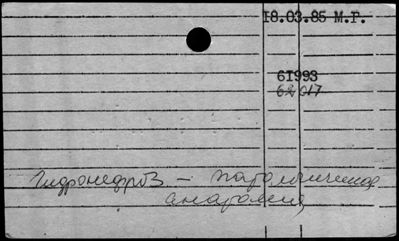 18.03.85 М.Р.
61993
62017
Гидронефроз – патологическая
анатомия